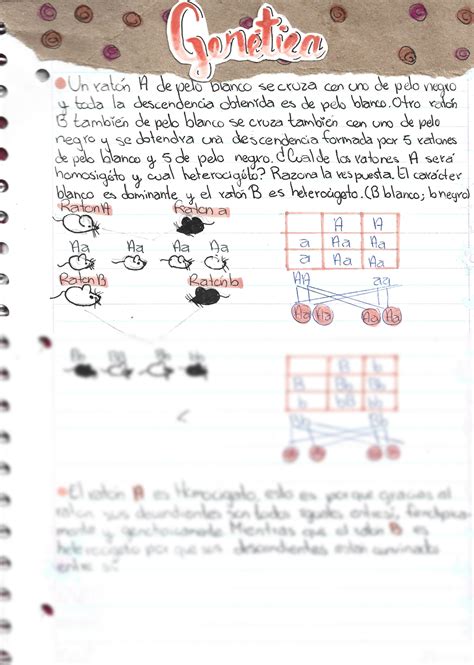 Genética
Un ratón A de pelo blanco se cruza con uno de pelo negro
y toda la descendencia obtenida es de pelo blanco. Otro ratón
B también de pelo blanco se cruza también con uno de pelo
negro y se obtendra una descendencia formada por 5 ratones
de pelo blanco y 5 de pelo negro. ¿Cual de los ratones A será
homosigóto y cual heterocigóto? Razona la respuesta. El carácter
blanco es dominante y el ratón B es heterocigoto. (B blanco; b negro)
Ratón A Ratón a
A A
Aa Aa Aa Aa
a Aa Aa
a Aa Aa
Ratón B Ratón b
AA aa
Aa Aa Aa Aa
Bb BB Bb bb
B b
B Bb
b bB bb
Bb Bb
El ratón A es Homocigoto, esto es porque gracias al
raton sus descendientes son todos iguales entre sí,
Mientras que el ratón B es
heterocigoto por que sus descendientes estan
entre sí